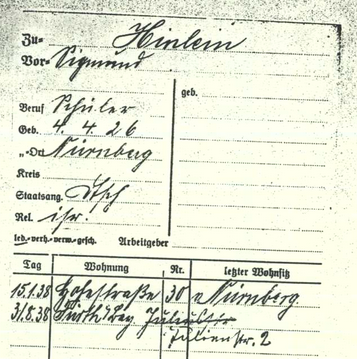 Zu- Hinlein
Vor- Sigmund
geb.
Beruf Schüler
Geb. 4. 4. 26
„-Ort Nürnberg
Kreis
Staatsang. Dtsch
Rel. isr.
led.-verh.-verw.-gesch. Arbeitgeber
Tag Wohnung Nr. letzter Wohnsitz
15.1.38 Hohestraße 30 v Nürnberg
31.8.38 Fürth/Bay.
Julienstr. 2